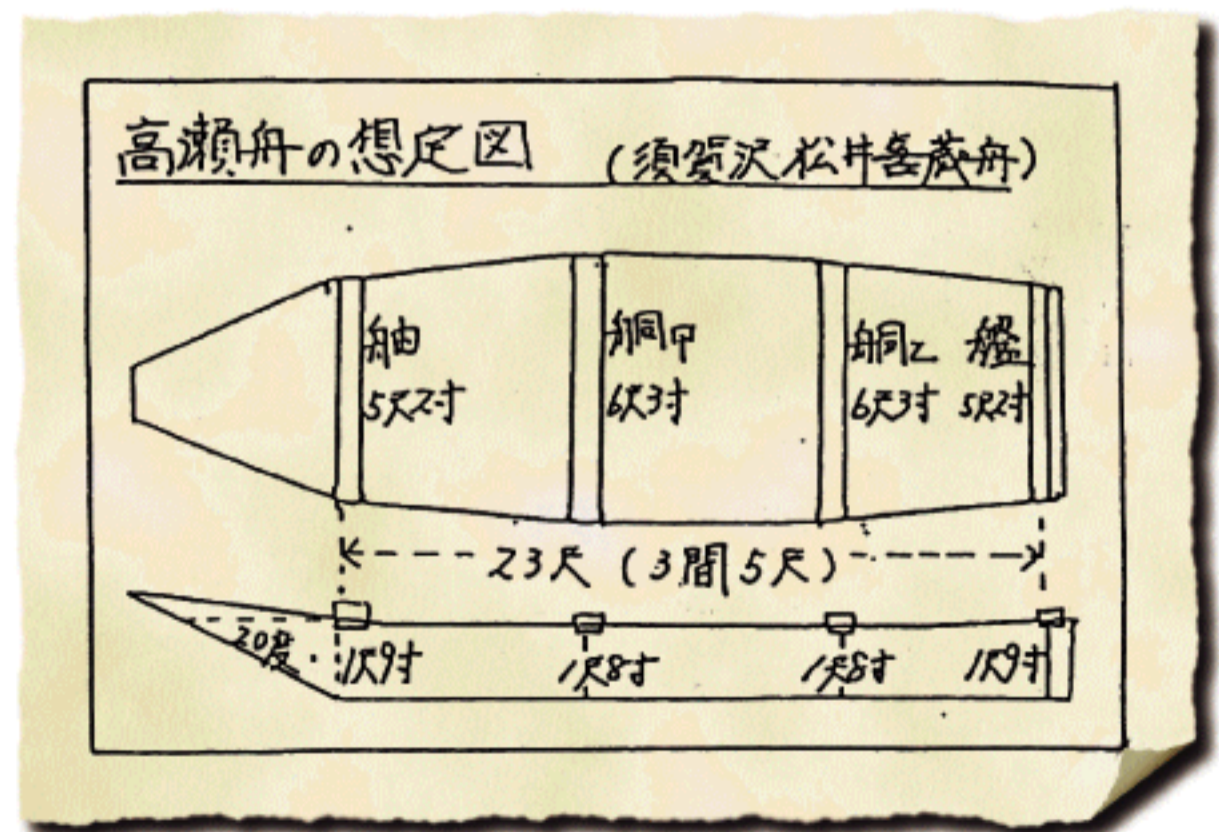 高瀬舟の想定図 (須賀沢松井喜蔵舟)
舳 胴甲 胴乙 艫
5尺2寸 6尺3寸 6尺3寸 5尺2寸
23尺(3間5尺)
20度 1尺9寸 1尺8寸 1尺8寸 1尺9寸